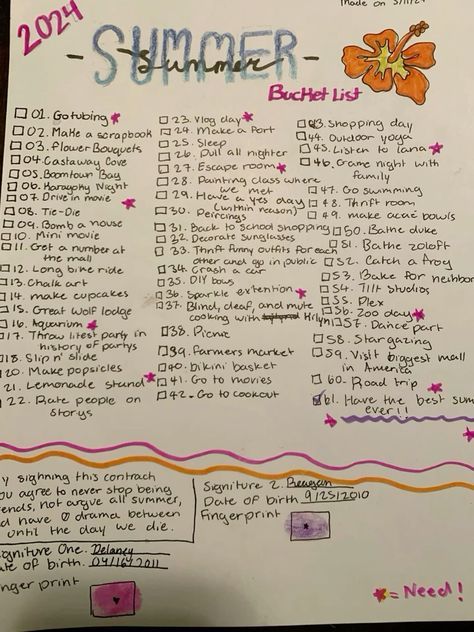 made on 5/11/24
2024
SUMMER
Summer
Bucket List
01. Go tubing
02. Make a scrapbook
03. Flower Bouquets
04. Castaway Cove
05. Boomtown Bay
06. Karaoke Night
07. Drive in movie
08. Tie-Die
09. Bomb a house
10. Mini movie
11. Get a number at
the mall
12. Long bike ride
13. Chalk art
14. make cupcakes
15. Great Wolf lodge
16. Aquarium
17. Throw litest party in
history of partys
18. Slip n' slide
20. Make popsicles
21. Lemonade stand
22. Rate people on
storys
23. Vlog day
24. Make a Fort
25. Sleep
26. Pull all nighter
27. Escape room
28. Painting class where
we met
29. Have a yes day
(within reason)
30. Peircings
31. Back to school shopping
32. Decorate sunglasses
33. Thrift funny outfits for each
other and go in public
34. Crash a car
35. DIY bows
36. Sparkle extention
37. Blind, deaf, and mute
cooking with
38. Picnic
39. Farmers market
40. bikini basket
41. Go to movies
42. Go to cookout
43. Shopping day
44. Outdoor yoga
45. Listen to lana
46. Game night with
family
47. Go swimming
48. Thrift room
49. make acai bowls
50. Bathe duke
51. Bathe zoloft
52. Catch a frog
53. Bake for neighbor
54. Tilt studios
55. Plex
56. Zoo day
57. Dance part
58. Stargazing
59. Visit biggest mall
in America
60. Road trip
61. Have the best sum
ever!!
y sighning this contrach
ou agree to never stop being
ends, not argue all summer,
d have 0 drama between
until the day we die.
igniture One. Delaney
ate of birth. 04/16/2011
nger print
Signiture 2. Reagan
Date of birth 9/25/2010
Fingerprint
= Need!